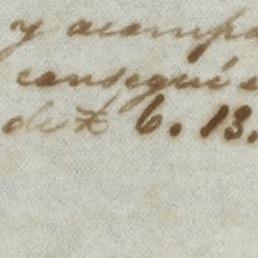 y acompa
conseguí
de £ 6. 13.